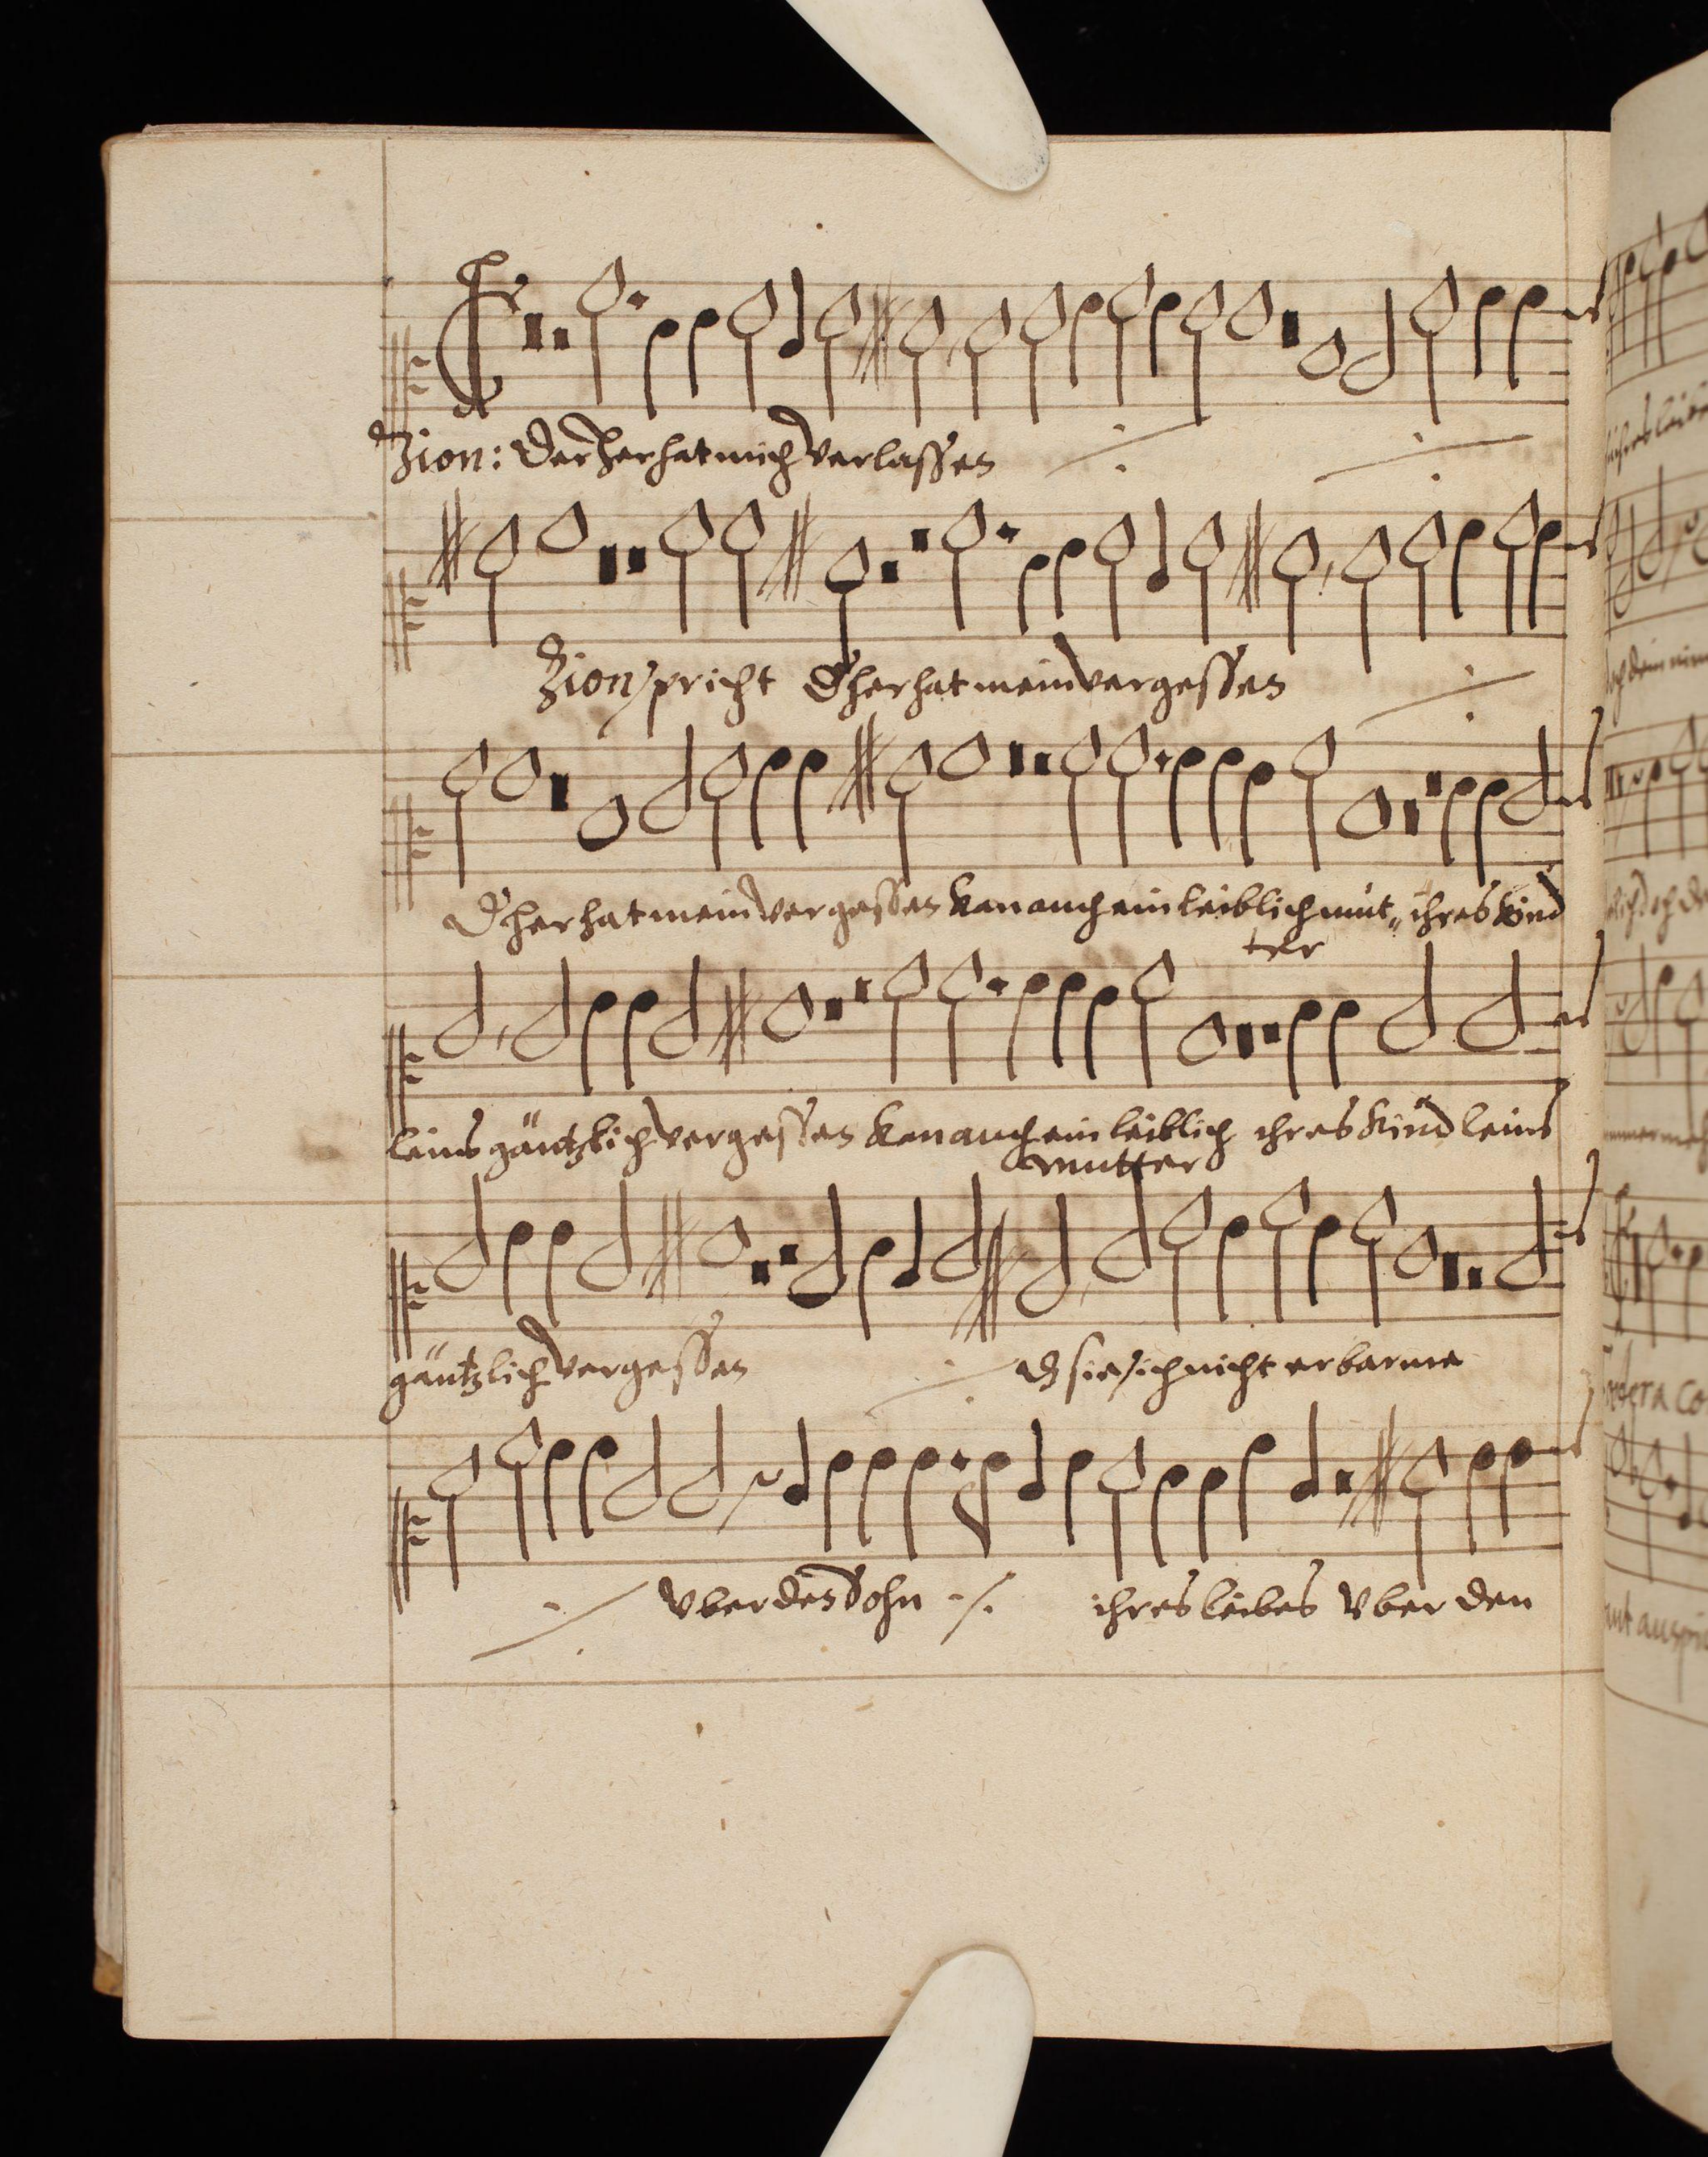 Zion: Der Herr hat mich verlassen ·/· ·/·
Zion spricht D herr hat mein vergessen ·/·
D herr hat mein vergessen Kan auch ein leiblich mut„ ihres Kind
ter
leins gäntzlich vergessen Kan auch ein leiblich ihres Kind leins
mutter
gäntzlich vergessen ·/· dz sie sich nicht erbarme
·/· Vber den Sohn ·/· ihres leibes Vber den